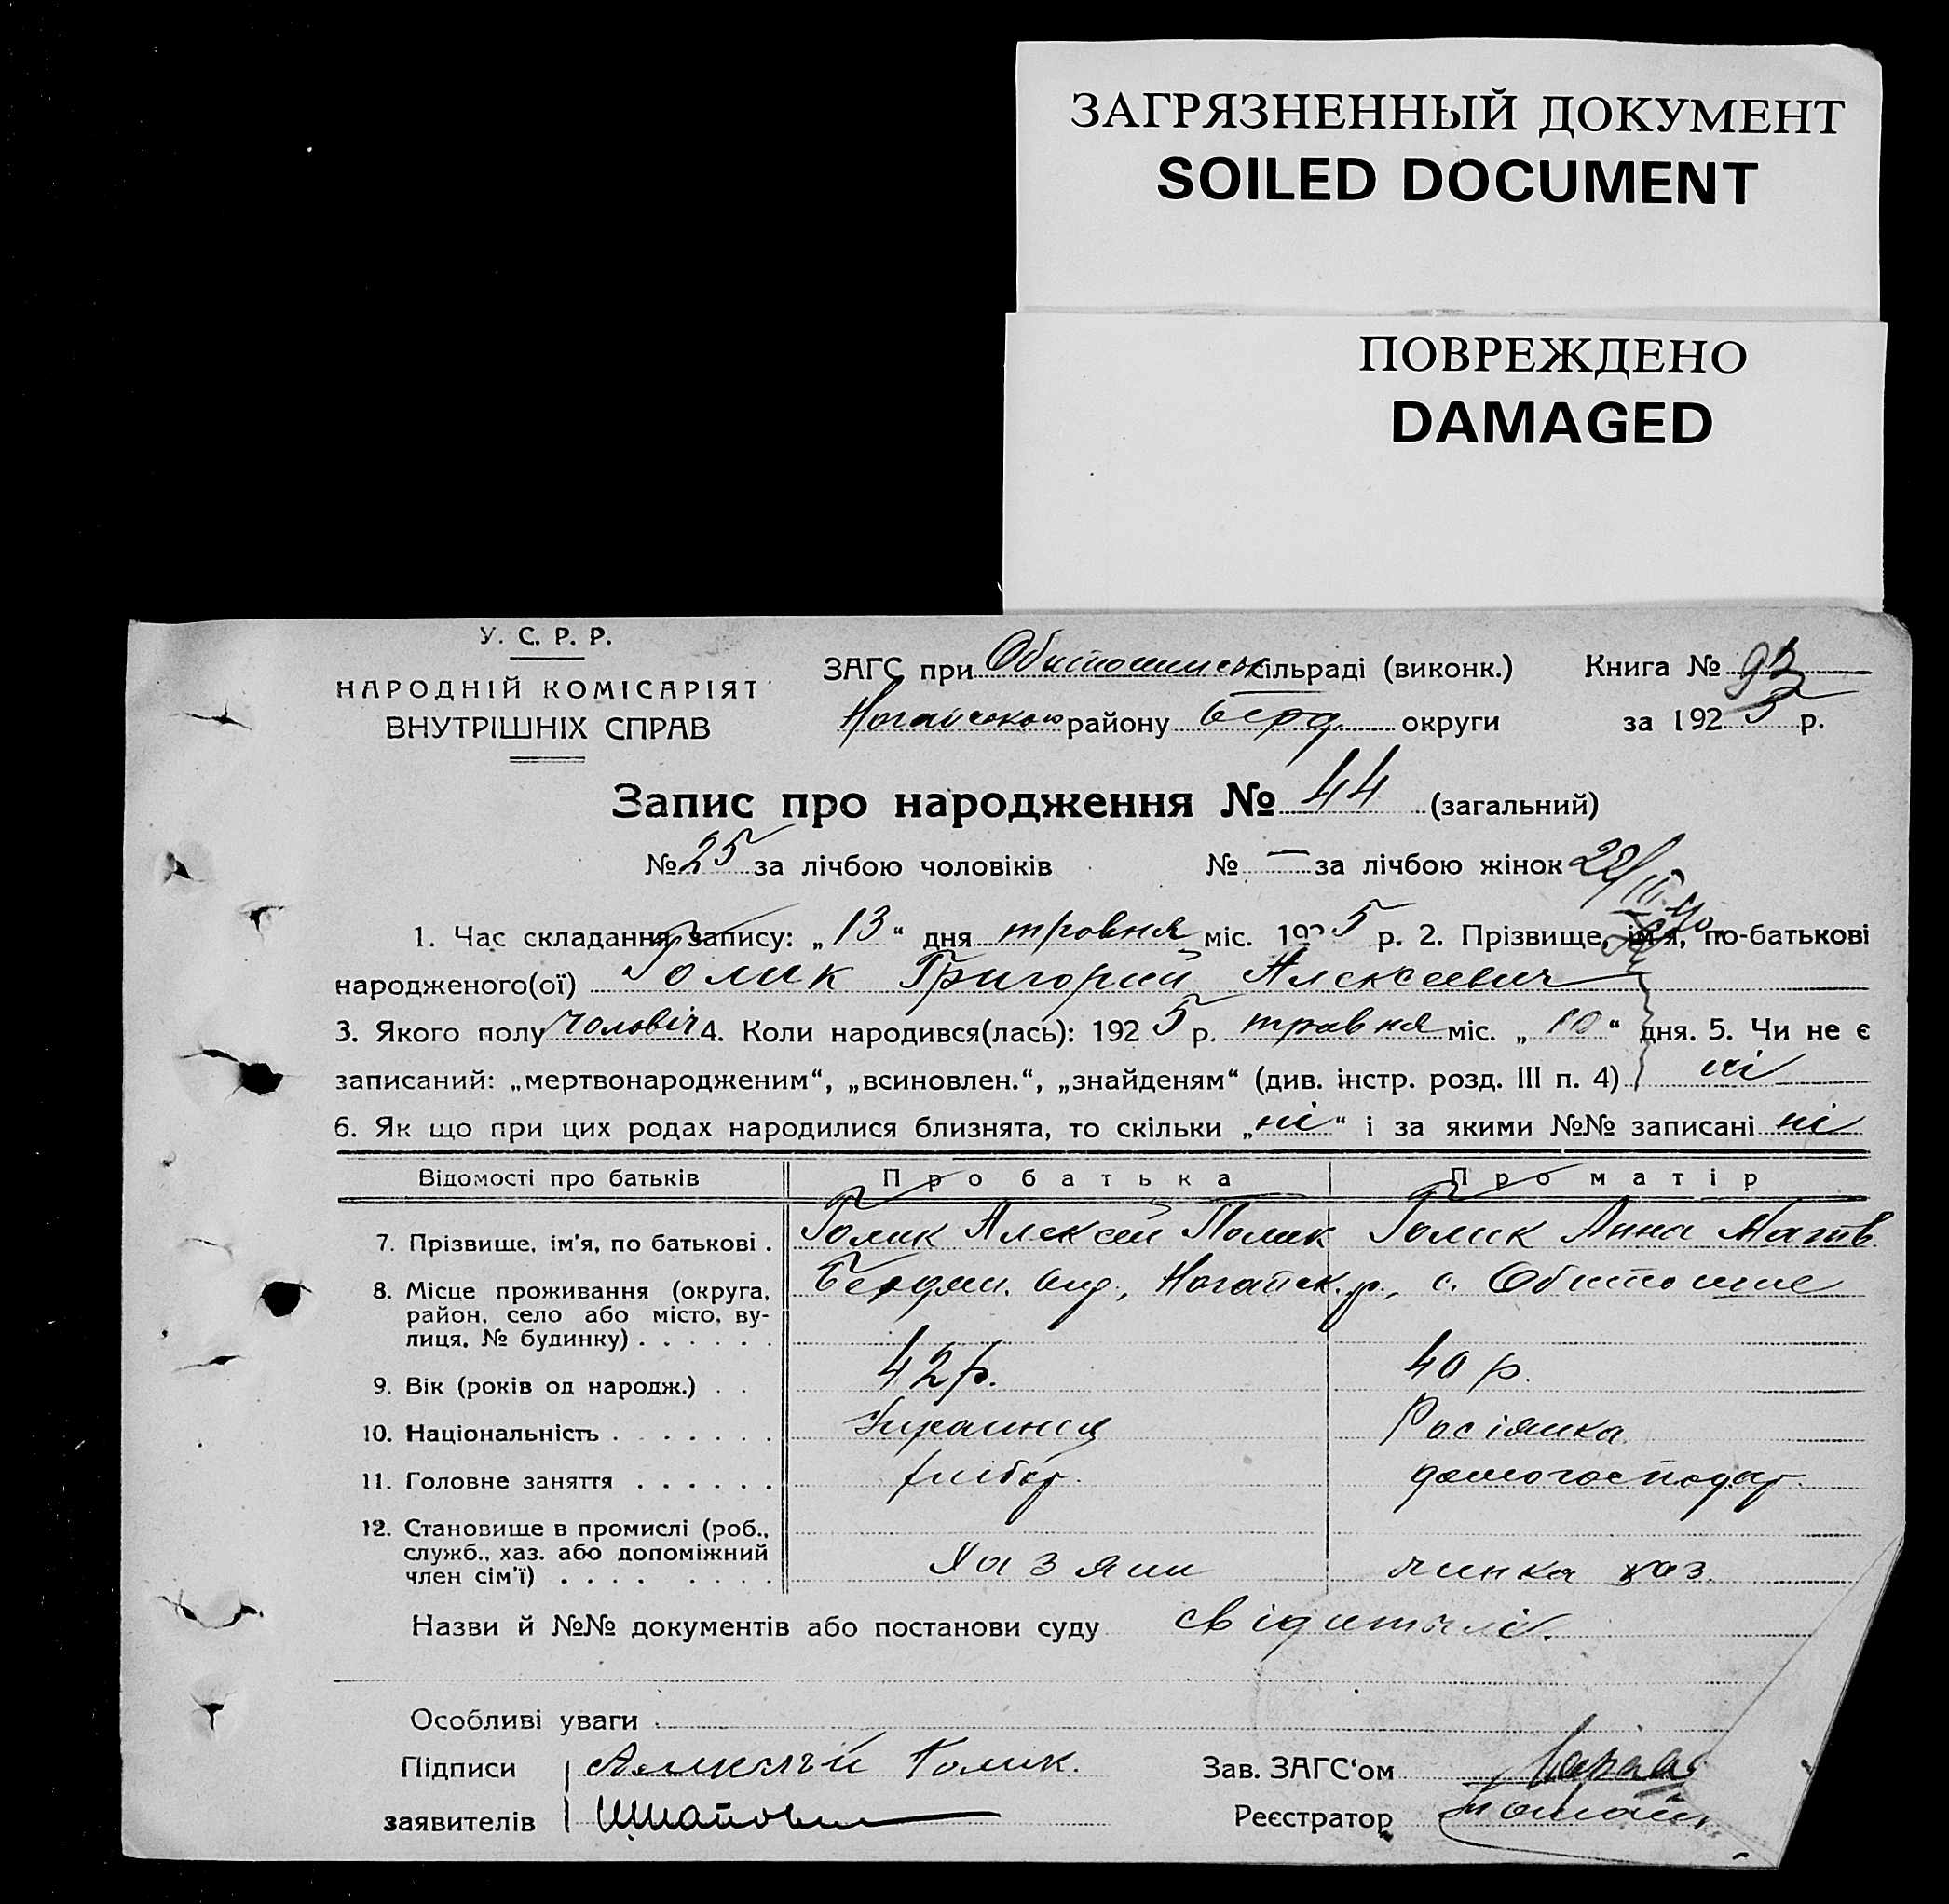 ЗАГРЯЗНЕННЫЙ ДОКУМЕНТ
SOILED DOCUMENT
ПОВРЕЖДЕНО
DAMAGED
У. С. Р. Р.
НАРОДНІЙ КОМІСАРІЯТ
ВНУТРІШНІХ СПРАВ
ЗАГС при Обиточинск сільраді (виконк.) Книга №
Ногайського району Берд. округи за 1925 р.
Запис про народження № 44 (загальний)
№ 25 за лічбою чоловіків № — за лічбою жінок
1. Час складання запису: „13“ дня травня міс. 1925 р. 2. Прізвище, ім'я, по-батькові
народженого(ої) Голик Григорий Алексеевич
3. Якого полу чоловіч 4. Коли народився(лась): 1925 р. травня міс. „10“ дня. 5. Чи не є
записаний: „мертвонародженим“, „всиновлен.“, „знайденям“ (див. інстр. розд. III п. 4) ні
6. Як що при цих родах народилися близнята, то скільки „ні“ і за якими №№ записані ні
Відомості про батьків Про батька Про матір
7. Прізвище, ім'я, по батькові . Голик Алексей Голик Анна Матв.
8. Місце проживання (округа, Бердян. окр., Ногайск. р., с. Обиточне
район, село або місто, ву-
лиця, № будинку) . . . . . .
9. Вік (років од народж.) . . 42 р. 40 р.
10. Національність . . . . . . . Украинец Росіянка
11. Головне заняття . . . . . . хлібор. домогосподар.
12. Становище в промислі (роб.,
служб., хаз. або допоміжний
член сім'ї) . . . . . . . . Хазяин жинка хаз.
Назви й №№ документів або постанови суду свідителі.
Особливі уваги
Підписи Аликсѣй Голик. Зав. ЗАГС'ом
заявителів Реєстратор